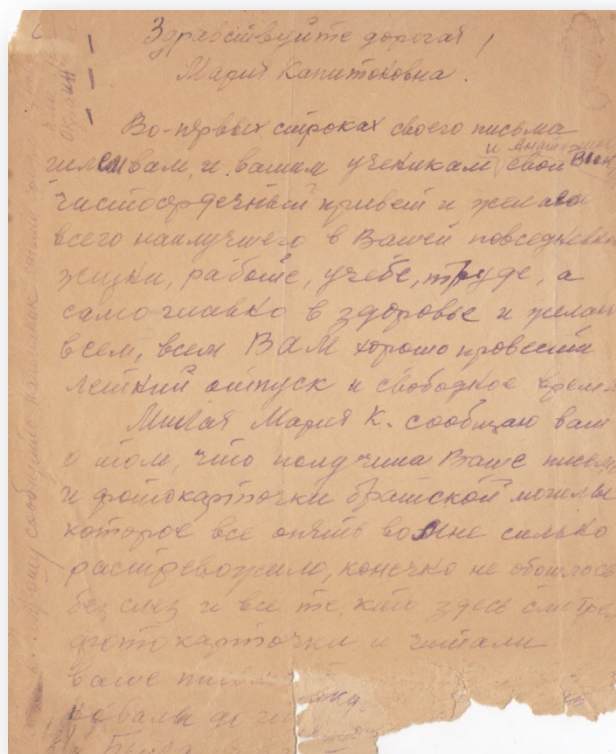 Здравствуйте дорогая,
Мария Капитоновна.
Во-первых строках своего письма
шлем вам, и вашим ученикам свой
и
чистосердечный привет и желаю
всего наилучшего в Вашей повседневн
жизни, работе, учебе, труде, а
само главно в здоровье и желаю
всем, всем ВАМ хорошо провести
летний отпуск и свободное время
Милая Мария К. сообщаю вам
о том, что получила Ваше письмо
и фотокарточки братской могилы
которое все опять во мне силько
растревожило, конечно не обошлось
без слез и все те, кто здесь смотре
фотокарточки и читали
ваше
Была